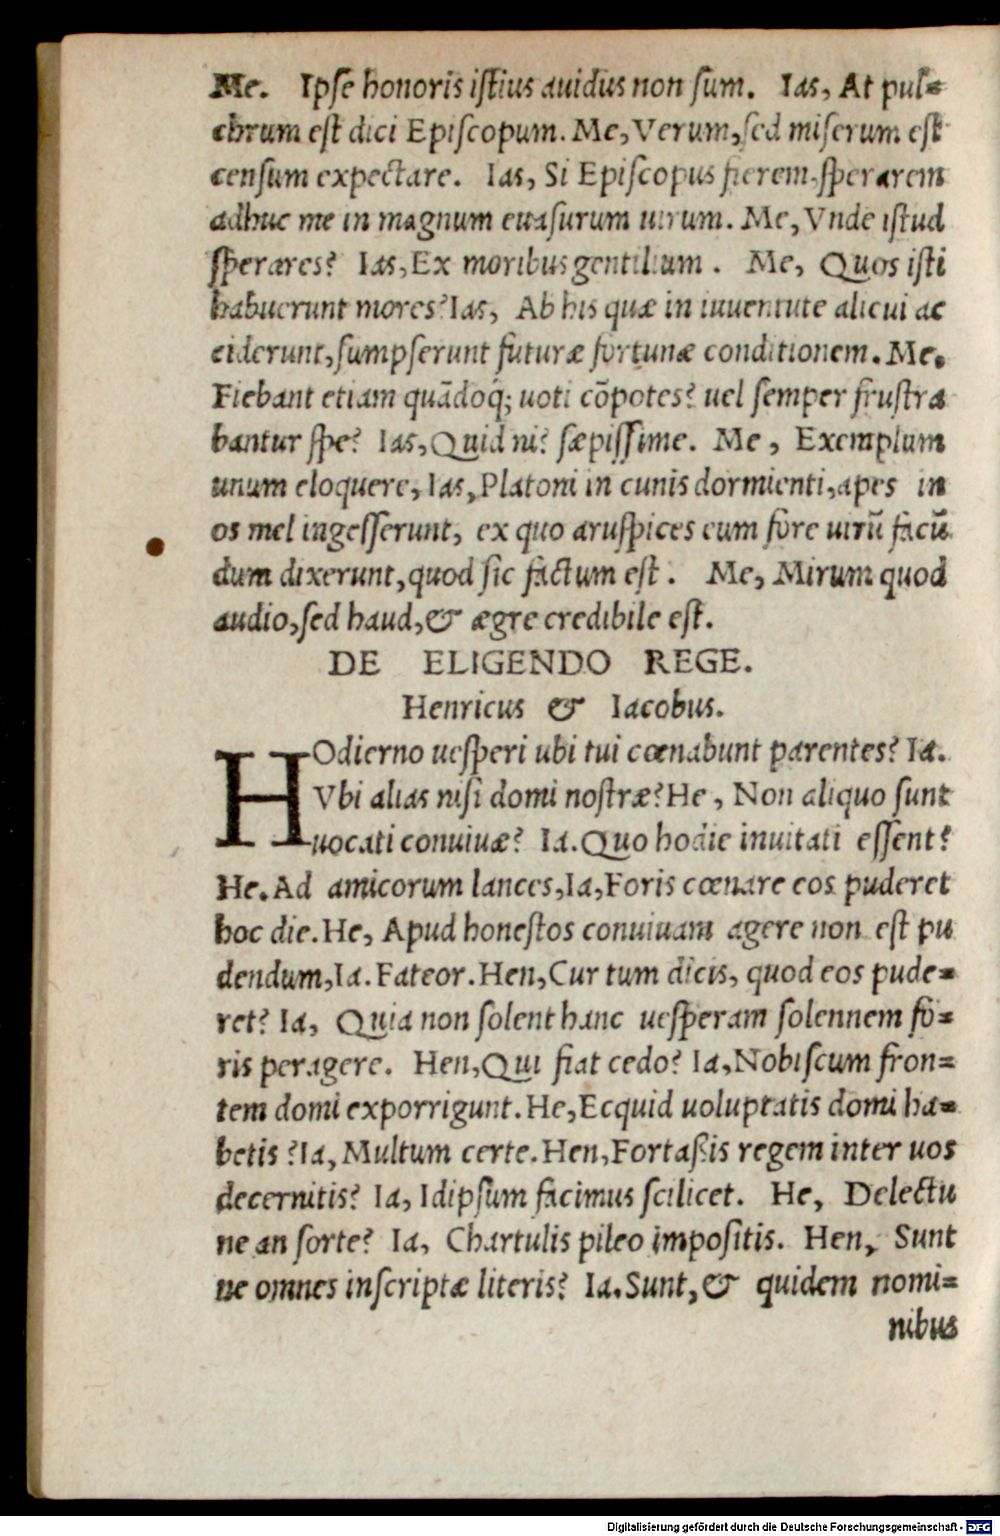 Me. Ipſe honoris iſtius auidus non ſum. Ias, At pul=
chrum eſt dici Epiſcopum. Me, Verum, ſed miſerum eſt
cenſum expectare. Ias, Si Epiſcopus fierem, ſperarem
adhuc me in magnum euaſurum uirum. Me, Vnde iſtud
ſperares? Ias, Ex moribus gentilium. Me, Quos iſti
habuerunt mores? Ias, Ab his quæ in iuuentute alicui ac
ciderunt, ſumpſerunt futuræ fortunæ conditionem. Me.
Fiebant etiam quãdoq́; uoti cõpotes? uel ſemper fruſtra
bantur ſpe? Ias, Quid ni? ſæpiſſime. Me, Exemplum
unum eloquere, Ias, Platoni in cunis dormienti, apes in
os mel ingeſſerunt, ex quo aruſpices eum fore uirũ facũ
dum dixerunt, quod ſic factum eſt. Me, Mirum quod
audio, ſed haud, & ægre credibile eſt.
DE ELIGENDO REGE.
Henricus & Iacobus.
HOdierno ueſperi ubi tui cœnabunt parentes? Ia.
Vbi alias niſi domi noſtræ? He, Non aliquo ſunt
uocati conuiuæ? Ia. Quo hodie inuitati eſſent?
He. Ad amicorum lances, Ia, Foris cœnare eos puderet
hoc die. He, Apud honeſtos conuiuam agere non eſt pu
dendum, Ia. Fateor. Hen, Cur tum dicis, quod eos pude=
ret? Ia, Quia non ſolent hanc ueſperam ſolennem fo=
ris peragere. Hen, Qui fiat cedo? Ia, Nobiſcum fron=
tem domi exporrigunt. He, Ecquid uoluptatis domi ha=
betis? Ia, Multum certe. Hen, Fortaßis regem inter uos
decernitis? Ia, Idipſum facimus ſcilicet. He, Delectu
ne an ſorte? Ia, Chartulis pileo impoſitis. Hen, Sunt
ne omnes inſcriptæ literis? Ia. Sunt, & quidem nomi=
nibus
Digitalisierung gefördert durch die Deutsche Forschungsgemeinschaft - DFG